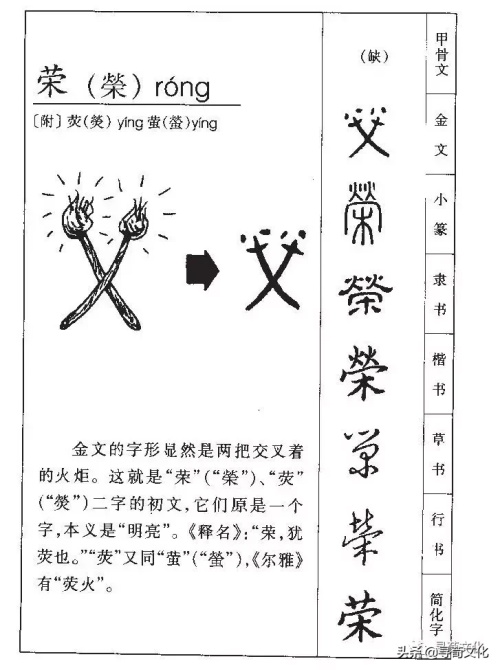 荣（榮）róng
〔附〕荧(熒) yíng 萤(螢)yíng
金文的字形显然是两把交叉着
的火炬。这就是“荣”(“榮”)、“荧”
(“熒”)二字的初文,它们原是一个
字,本义是“明亮”。《释名》:“荣,犹
荧也。”“荧”又同“萤”(“螢”),《尔雅》
有“荧火”。
(缺)
甲骨文
金文
小篆
榮
隶书
榮
楷书
榮
草书
行书
榮
简化字
荣
头条@寻简文化